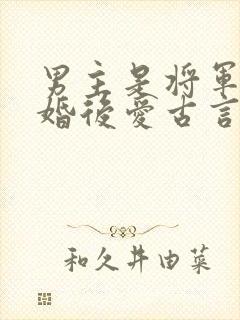 男主是將軍
婚後愛古言
和久井由菜